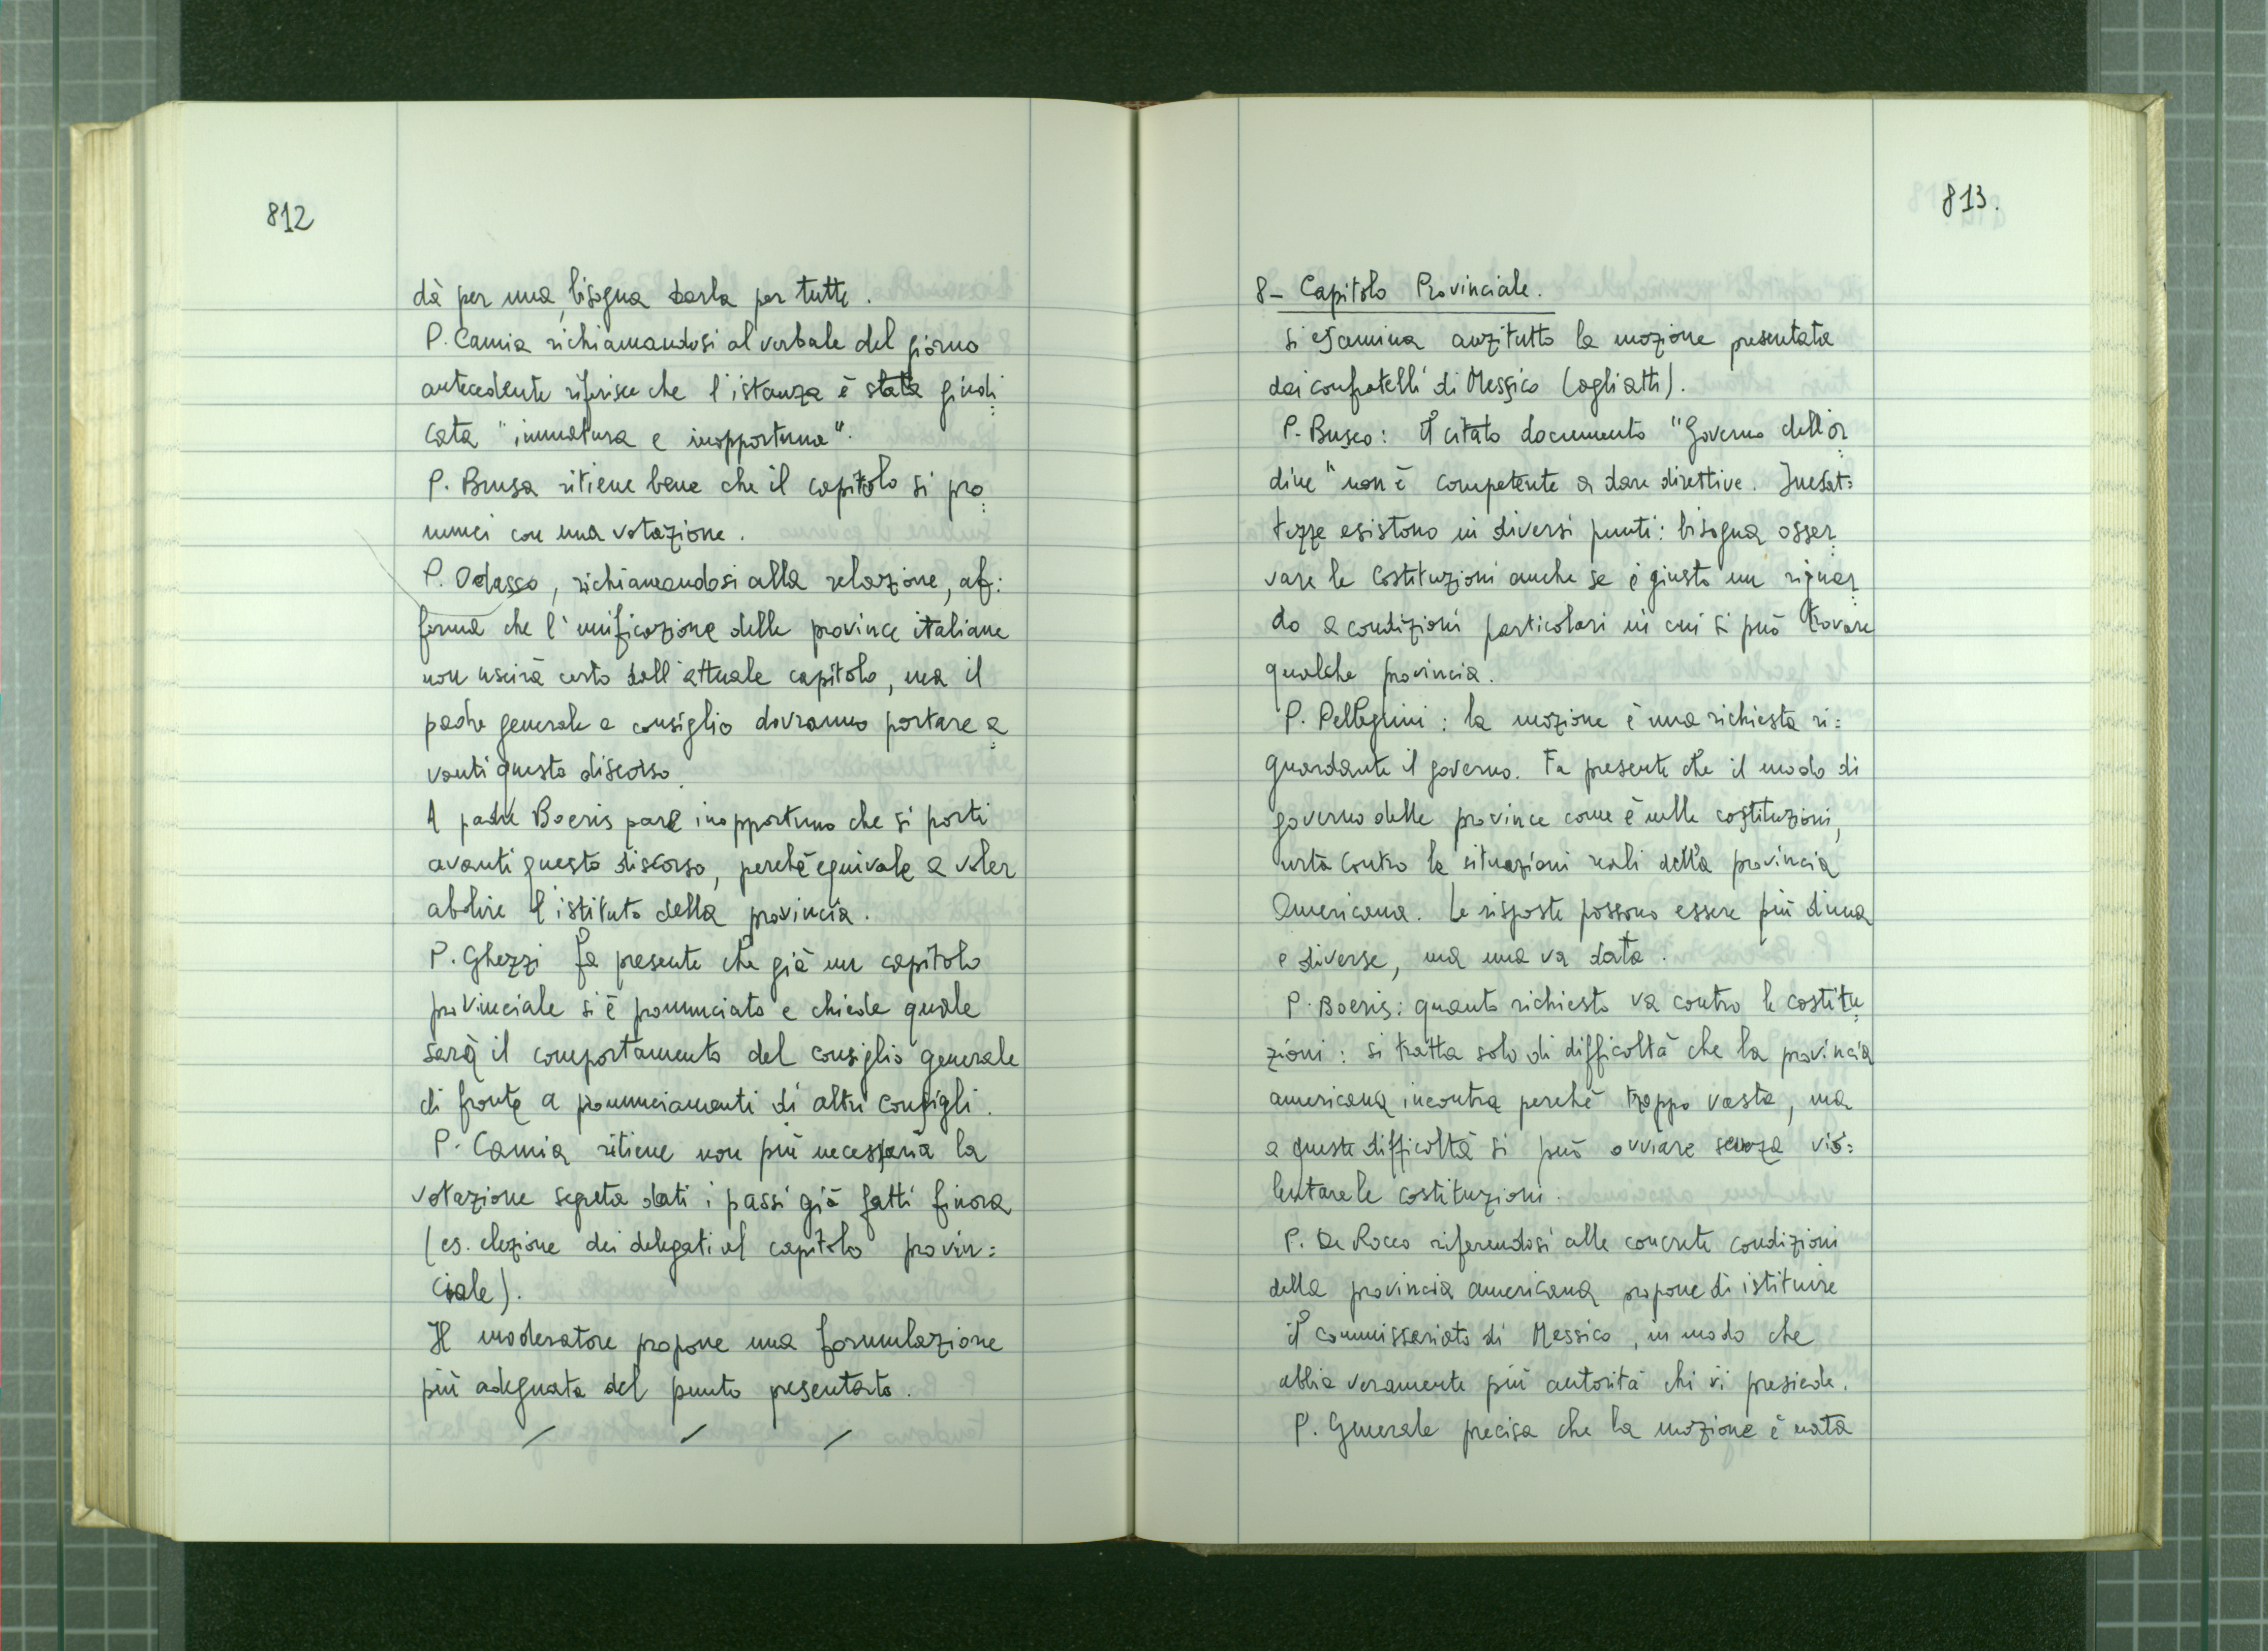 812
dà per una, bisogna darla per tutte.
P. Camia richiamandosi al verbale del giorno
antecedente riferisce che l'istanza è stata giudi
cata "immatura e inopportuna".
P. Brusa ritiene bene che il capitolo si pro
nunci con una votazione.
P. Odasso, richiamandosi alla relazione, af:
ferma che l'unificazione delle province italiane
non uscirà certo dall'attuale capitolo, ma il
padre generale e consiglio dovranno portare a
vanti questo discorso.
A padre Boeris pare inopportuno che si porti
avanti questo discorso, perché equivale a voler
abolire l'istituto della provincia.
P. Ghezzi fa presente che già un capitolo
provinciale si è pronunciato e chiede quale
sarà il comportamento del consiglio generale
di fronte a pronunciamenti di altri consigli.
P. Camia ritiene non più necessaria la
votazione segreta dati i passi già fatti finora
(es. elezione dei delegati al capitolo provin:
ciale).
Il moderatore propone una formulazione
più adeguata del punto presentato.
813.
8- Capitolo Provinciale.
Si esamina anzitutto la mozione presentata
dai confratelli di Messico (agli atti).
P. Busco: Il citato documento "Governo dell'or
dine" non è competente a dare direttive. Inesat:
tezze esistono in diversi punti: bisogna osser
vare le Costituzioni anche se è giusto un riguar
do a condizioni particolari in cui si può trovare
qualche provincia.
P. Pellegrini: la mozione è una richiesta ri:
guardante il governo. Fa presente che il modo di
governo delle province come è nelle costituzioni,
urta contro le situazioni reali della provincia
Americana. Le risposte possono essere più di una
e diverse, ma una va data.
P. Boeris: quanto richiesto va contro le costitu
zioni: si tratta solo di difficoltà che la provincia
americana incontra perché troppo vasta, ma
a queste difficoltà si può ovviare senza vio:
lentare le costituzioni.
P. De Rocco riferendosi alle concrete condizioni
della provincia americana propone di istituire
il commissariato di Messico, in modo che
abbia veramente più autorità chi vi presiede.
P. Generale precisa che la mozione è nata